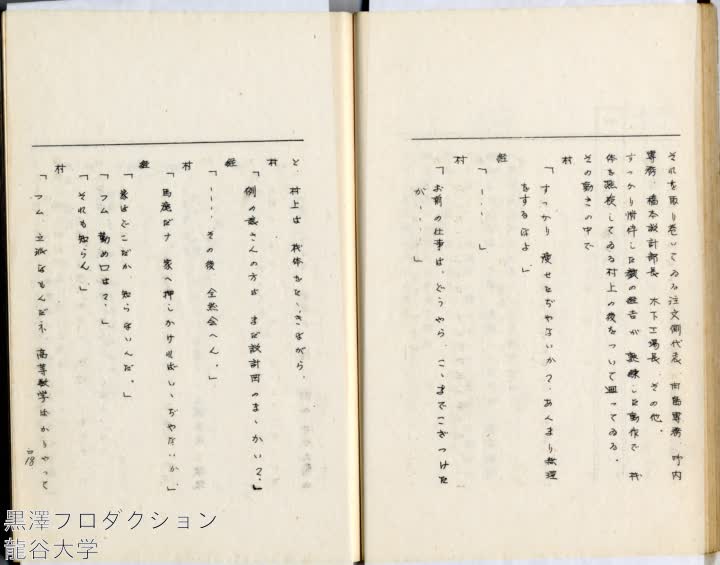 それを取り巻いてゐる注文側代表 向島専務 竹内
専務、橋本設計部長 木下工場長 その他。
すっかり憔悴した 数の 経吉が 熟練した動作で 機
体を 視してゐる村上の後をついて廻ってゐる。
その動きの中で
村
「すっかり 痩せたぢやないか？ あんまり無理
をするなよ」
経
「……」
村
「お前の仕事は、どうやら、こゝまでこぎつけた
が……」
と、村上は 機体をたゝきながら、
村
「例の さんの方は まだ設計図のまゝかい？」
経
「……その後 全然会へん。」
村
「馬鹿だナ 家へ押しかければいゝぢやないか」
経
「家はどこだか 知らないんだ。」
「フム 勤め口は？」
「それも知らん。」
村
「フム 立派なもんだネ 高等数学ばかりやって
18
黒澤プロダクション
龍谷大学